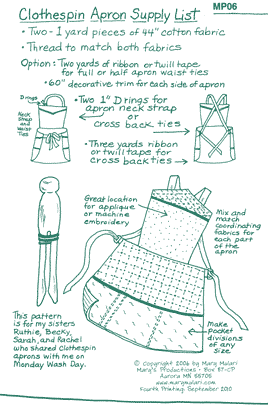 MP06
Clothespin Apron Supply List
• Two - 1 yard pieces of 44" cotton fabric
• Thread to match both fabrics
Option: Two yards of ribbon or twill tape
for full or half apron waist ties
• 60" decorative trim for each side of apron
D rings
Neck
Strap
and
Waist
Ties
• Two 1" D rings for
apron neck strap
or
cross back ties
• Three yards ribbon
or twill tape for
cross back ties
Great location
for applique
or machine
embroidery
Mix and
match
coordinating
fabrics for
each part
of the
apron
This pattern
is for my sisters
Ruthie, Becky,
Sarah, and Rachel
who shared Clothespin
aprons with me on
Monday Wash Day.
Make
pocket
divisions
of any
size.
© Copyright 2006 by Mary Mulari
Mary's Productions - Box 87-CP
Aurora MN 55705
www.marymulari.com
Fourth Printing: September 2010